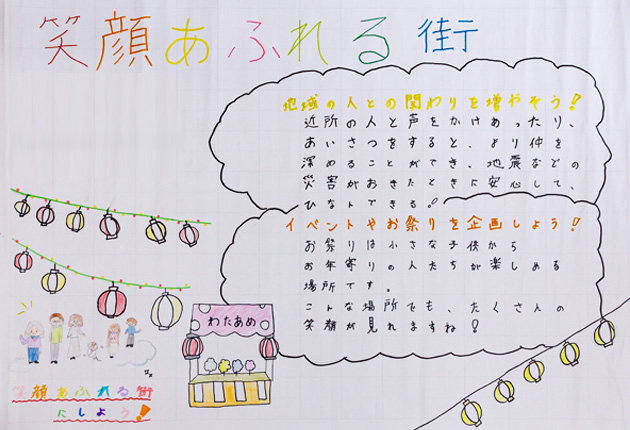 笑顔あふれる街
地域の人との関わりを増やそう!
近所の人と声をかけあったり、
あいさつをすると、より仲を
深めることができ、地震などの
災害がおきたときに安心して、
ひなんできる!
イベントやお祭りを企画しよう!
お祭りは小さな子供から
お年寄りの人たちが楽しめる
場所です。
こんな場所でも、たくさんの
笑顔が見れますね!
わたあめ
笑顔あふれる街
にしよう!